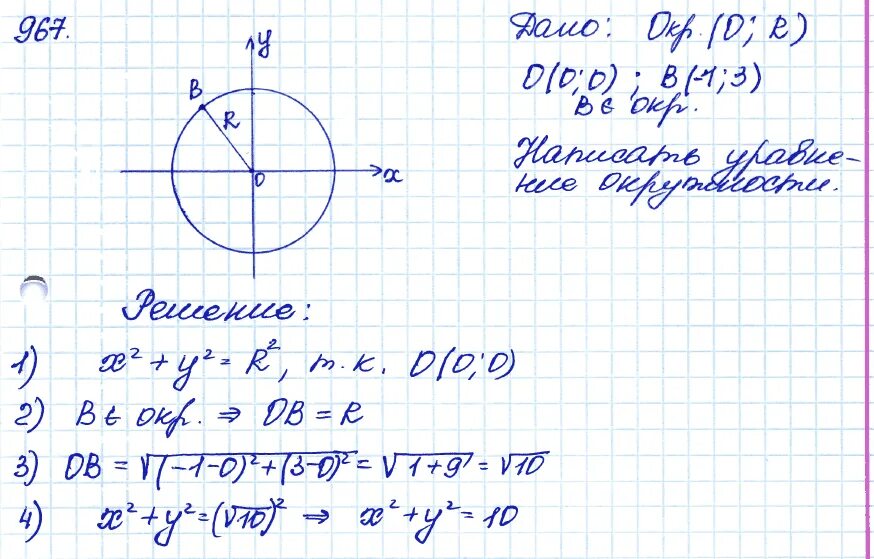 967.
Дано: Окр. (О; R)
О(0;0) ; В(-1;3)
В ∈ окр.
Написать уравне-
ние окружности.
y
B
R
O
x
Решение:
1) x² + y² = R², т.к. О(0;0)
2) В ∈ окр. ⇒ ОВ = R
3) ОВ = √((-1-0)²+(3-0)²) = √(1+9) = √10
4) x² + y² = (√10)² ⇒ x² + y² = 10